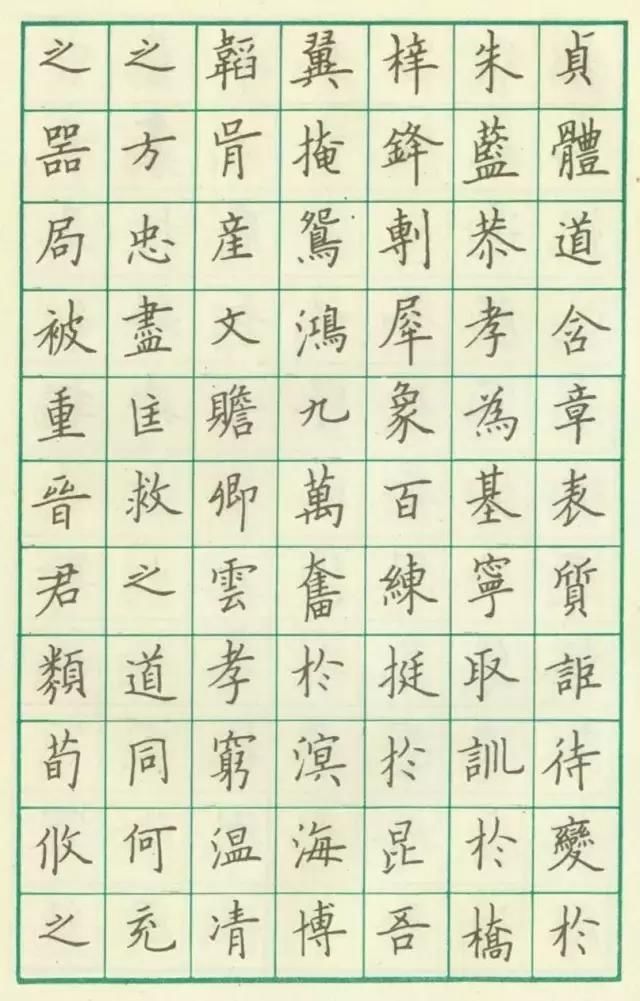 貞體道含章表質詎待變於
朱藍恭孝為基寧取訓於橋
梓鋒剸犀象百練挺於昆吾
翼掩鴛鴻九萬奮於溟海博
韜胥産文贍卿雲孝窮温凊
之方忠盡匡救之道同何充
之器局被重晉君類荀攸之